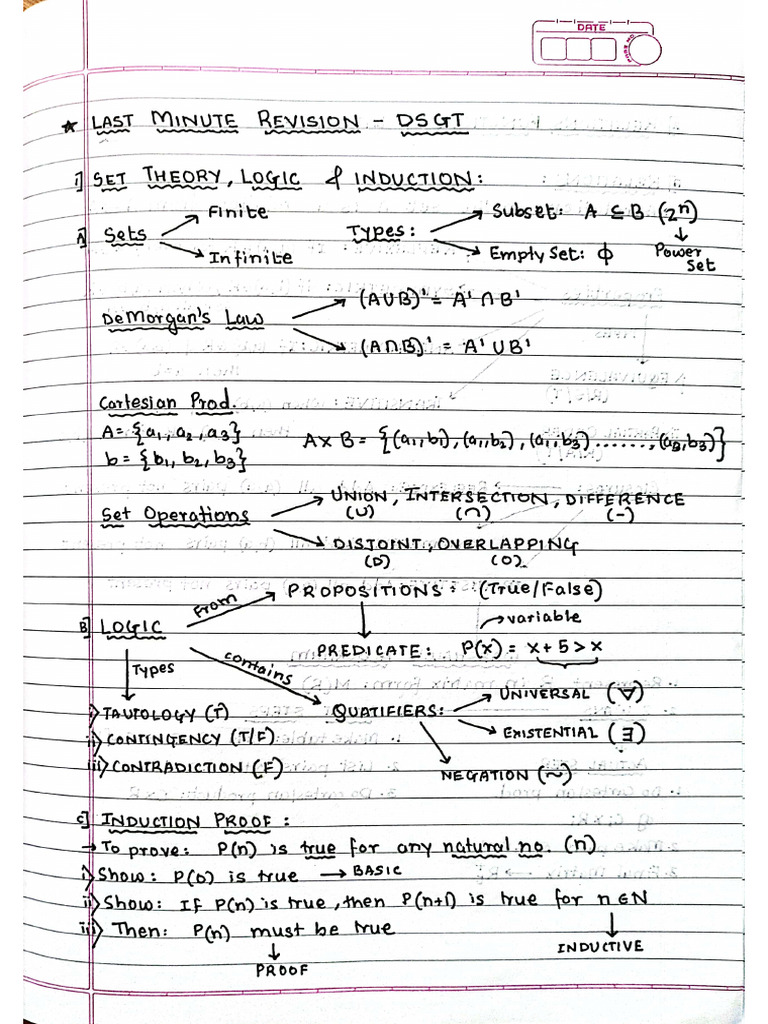 DATE
★ LAST MINUTE REVISION - DSGT
1] SET THEORY, LOGIC & INDUCTION:
A] Sets → Finite
→ Infinite
Types: → Subset: A ⊆ B (2ⁿ)
↓
Power Set
→ Empty Set: ϕ
DeMorgan's Law → (A∪B)' = A' ∩ B'
→ (A∩B)' = A' ∪ B'
Cartesian Prod.
A = {a₁, a₂, a₃}
b = {b₁, b₂, b₃}
A × B = {(a₁, b₁), (a₁, b₂), (a₁, b₃) ......., (a₃, b₃)}
Set Operations → UNION, INTERSECTION, DIFFERENCE
(∪) (∩) (-)
→ DISJOINT, OVERLAPPING
(D) (O)
B] LOGIC
From → PROPOSITIONS: (True/False)
→ variable
PREDICATE: P(x) = x + 5 > x
Types
contains
i) TAUTOLOGY (T)
ii) CONTINGENCY (T/F)
iii) CONTRADICTION (F)
QUATIFIERS: → UNIVERSAL (∀)
→ EXISTENTIAL (∃)
NEGATION (~)
C] INDUCTION PROOF:
→ To prove: P(n) is true for any natural no. (n)
i) Show: P(0) is true → BASIC
ii) Show: If P(n) is true, then P(n+1) is true for n ∈ N
iii) Then: P(n) must be true
↓
INDUCTIVE
↓
PROOF